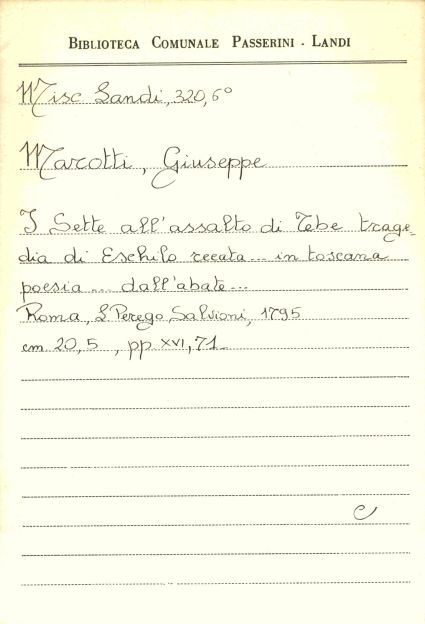 BIBLIOTECA COMUNALE PASSERINI - LANDI
Misc Landi, 320, 6°
Marotti, Giuseppe
I Sette all'assalto di Tebe trage-
dia di Eschilo recata ... in toscana
poesia ... dall'abate ...
Roma, L'Perego Salvioni, 1795
cm 20,5 , pp XVI, 71
C